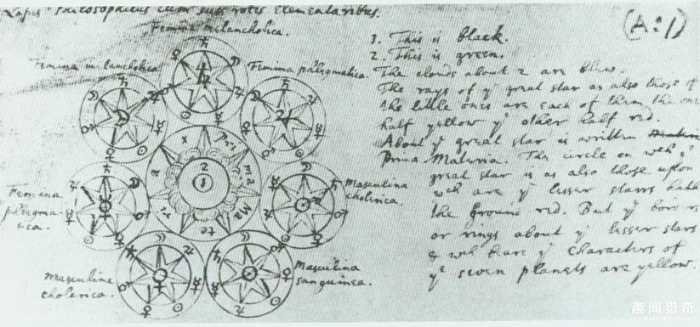 Lapis Philosophicus cum suis rotis Elementaribus.
Femina melancholica.
Femina melancholica
Femina phlegmatica.
Femina
phlegma-
tica.
Masculina
cholerica.
Masculina
cholerica.
Masculina
sanguinea.
prima Materia
1
2
(A:1)
1. This is black.
2. This is green.
The clouds about 2 are blew.
The rays of yͤ great star as also those of
the little ones are each of them the one
half yellow yͤ other half red.
About yͤ great star is written
Prima Materia. The circle on wᶜʰ yͤ
great star is as also those upon
wᶜʰ are yͤ lesser starrs have
the ground red. But yͤ borders
or rings about yͤ lesser stars
& wᶜʰ beare yͤ characters of
yͤ seven planets are yellow.
趣闻猎奇